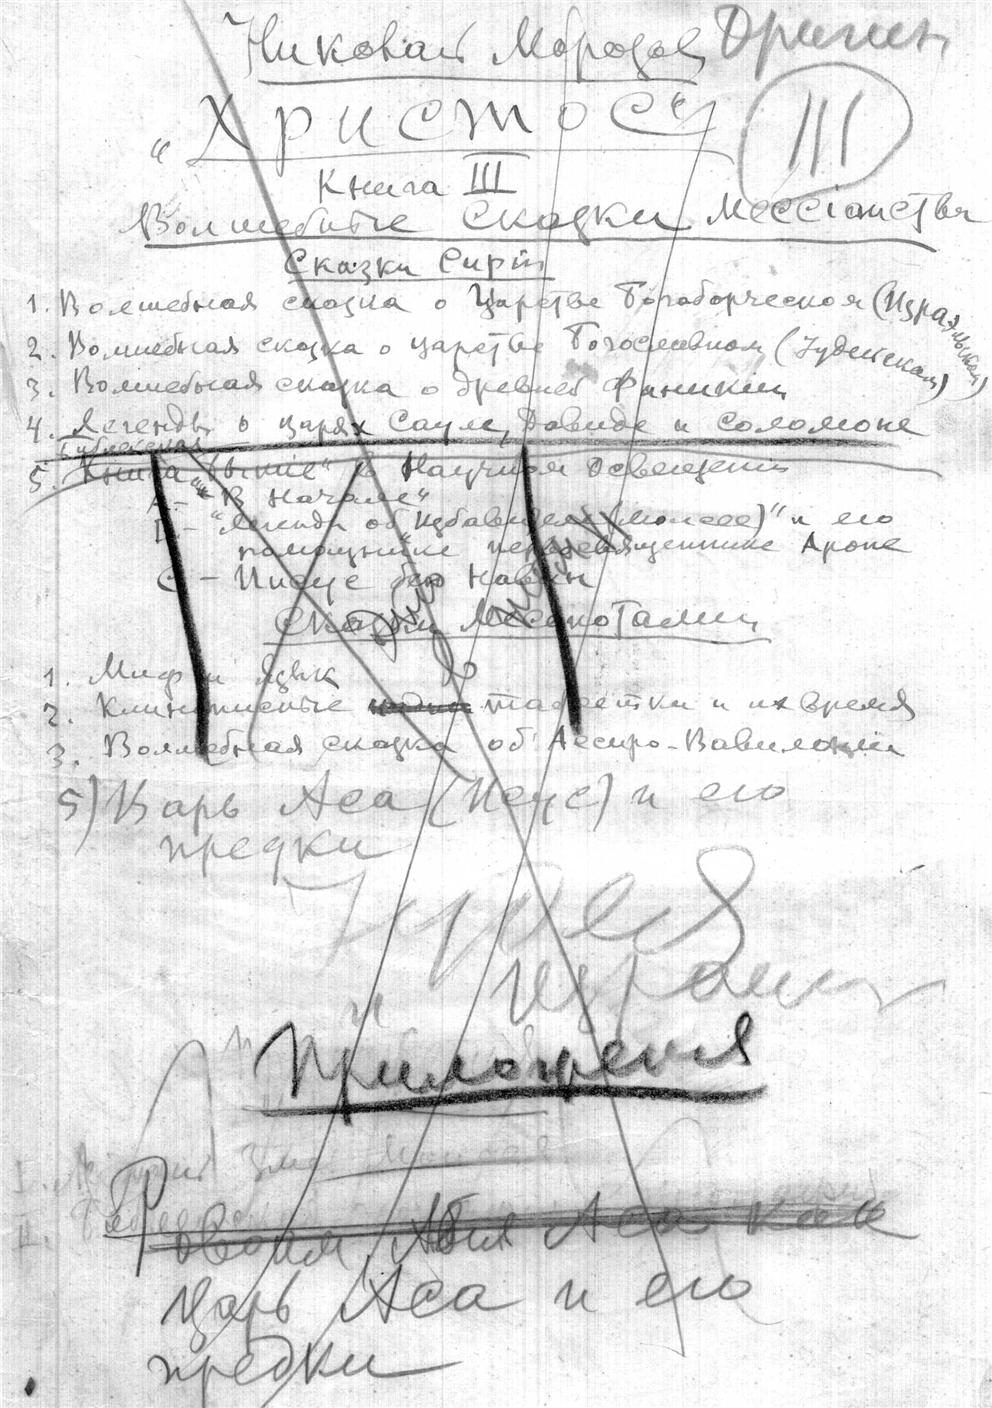 Николай Морозов
„Христос“
III
Книга III
Волшебные сказки Мессіанства
Сказки Сиріи
1. Волшебная сказка о Царстве Богоборческом (Израэльском)
2. Волшебная сказка о царстве Богославном (Іудейском)
3. Волшебная сказка о древней Финикии
4. Легенды о царях Сауле, Давиде и Соломоне
Библейская
5. Книга „Бытие“ в Научном освещении
А – „В Начале“
В – „Легенда об Избавителе (Моисее)“ и его
помощнике первосвященнике Ароне
С – Иисус бен Навин
Сказки Месопотамии
1. Миф и Язык
2. Клинописные таблетки и их время
3. Волшебная сказка об Ассиро-Вавилонии
5) Царь Аса (Исус) и его
предки
Иудея
и Израиль
Приложения
Ровоам, Абия Аса как
Царь Аса и его
предки